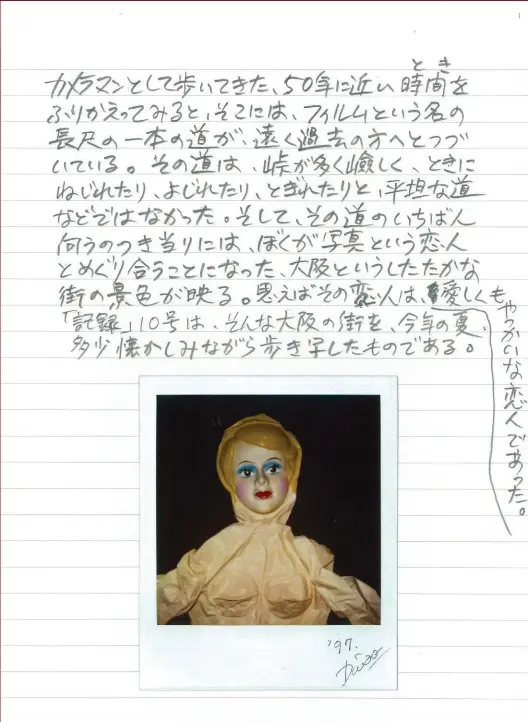 カメラマンとして歩いてきた、50年に近い時間を
とき
ふりかえってみると、そこには、フィルムという名の
長尺の一本の道が、遠く過去の方へとつづ
いている。その道は、峠が多く嶮しく、ときに
ねじれたり、よじれたり、とぎれたりと、平坦な道
などではなかった。そして、その道のいちばん
向うのつき当りには、ぼくが写真という恋人
とめぐり合うことになった、大阪というしたたかな
街の景色が映る。思えばその恋人は、愛しくも
やっかいな恋人であった。
「記録」10号は、そんな大阪の街を、今年の夏、
多少懐かしみながら歩き写したものである。
'97.
Daido